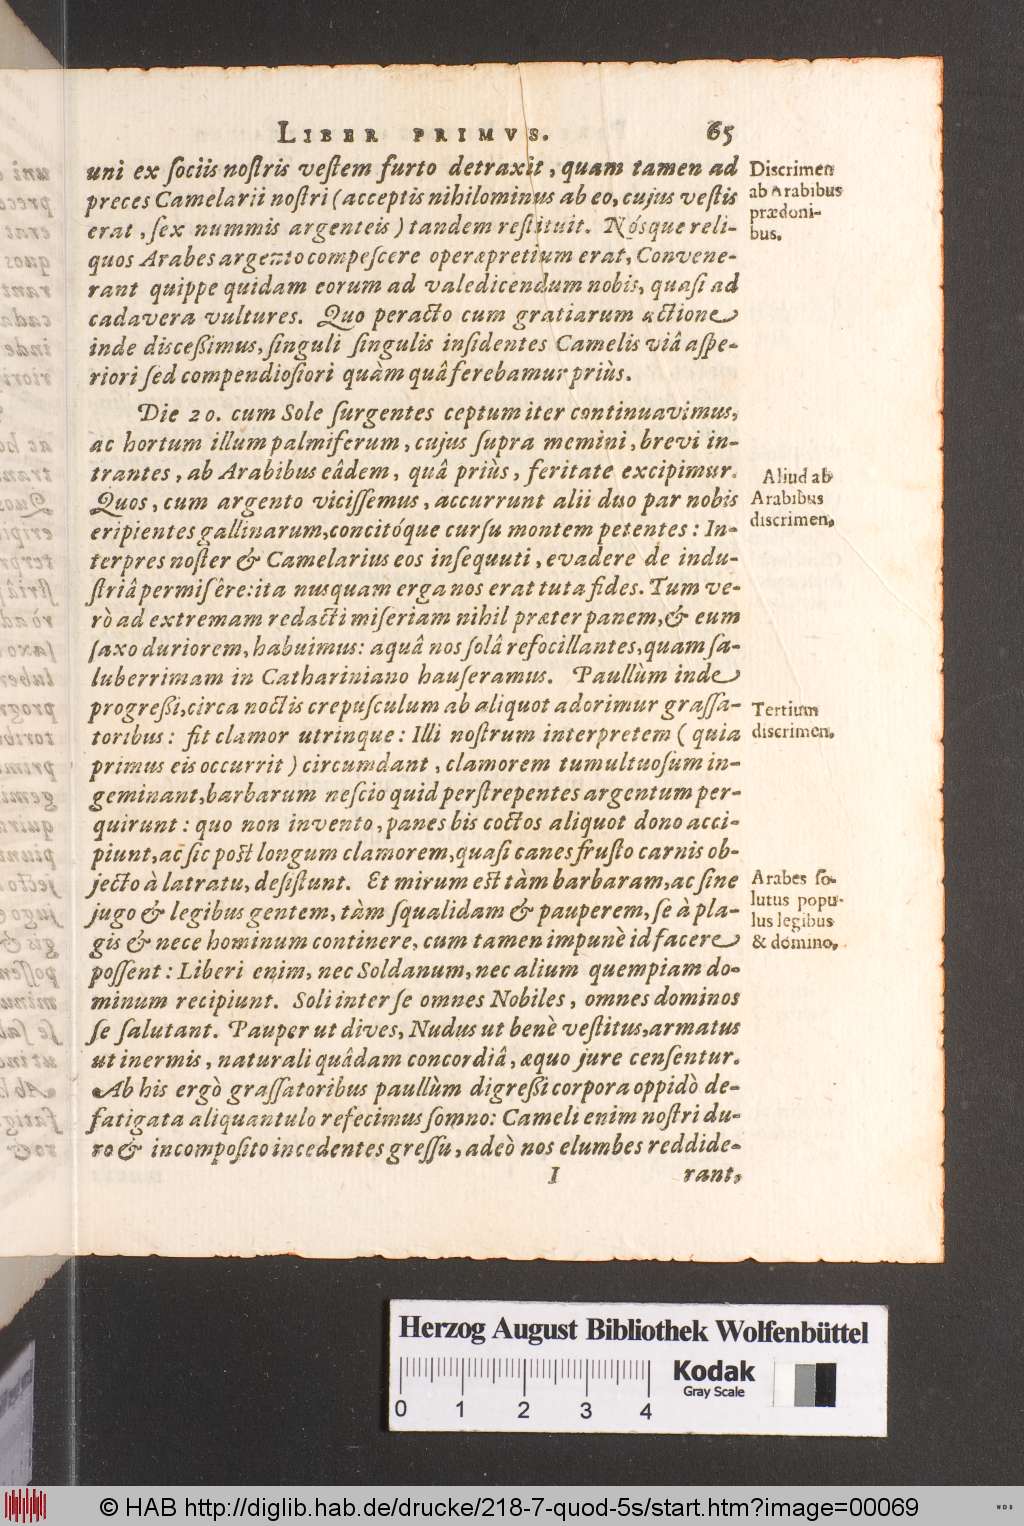 LIBER PRIMVS. 65
uni ex ſociis noſtris veſtem furto detraxit, quam tamen ad
preces Camelarii noſtri (acceptis nihilominus ab eo, cujus veſtis
erat, ſex nummis argenteis) tandem reſtituit. Nósque reli-
quos Arabes argento compeſcere operæpretium erat, Convene-
rant quippe quidam eorum ad valedicendum nobis, quaſi ad
cadavera vultures. Quo peracto cum gratiarum actione
inde disceßimus, ſinguli ſingulis inſidentes Camelis viâ aſpe-
riori ſed compendioſiori quàm quâ ferebamur priùs.
Discrimen
ab Arabibus
prædoni-
bus.
Die 20. cum Sole ſurgentes ceptum iter continuavimus,
ac hortum illum palmiferum, cujus ſupra memini, brevi in-
trantes, ab Arabibus eâdem, quâ priùs, feritate excipimur.
Quos, cum argento viciſſemus, accurrunt alii duo par nobis
eripientes gallinarum, concitóque curſu montem petentes: In-
terpres noſter & Camelarius eos inſequuti, evadere de indu-
ſtriâ permiſêre: ita nusquam erga nos erat tuta fides. Tum ve-
rò ad extremam redacti miſeriam nihil præter panem, & eum
ſaxo duriorem, habuimus: aquâ nos ſolâ refocillantes, quam ſa-
luberrimam in Cathariniano hauſeramus. Paullùm inde
progreßi, circa noctis crepuſculum ab aliquot adorimur graſſa-
toribus: fit clamor utrinque: Illi noſtrum interpretem (quia
primus eis occurrit) circumdant, clamorem tumultuoſum in-
geminant, barbarum neſcio quid perſtrepentes argentum per-
quirunt: quo non invento, panes bis coctos aliquot dono acci-
piunt, ac ſic poſt longum clamorem, quaſi canes fruſto carnis ob-
jecto à latratu, deſiſtunt. Et mirum eſt tàm barbaram, ac ſine
jugo & legibus gentem, tàm ſqualidam & pauperem, ſe à pla-
gis & nece hominum continere, cum tamen impunè id facere
poſſent: Liberi enim, nec Soldanum, nec alium quempiam do-
minum recipiunt. Soli inter ſe omnes Nobiles, omnes dominos
ſe ſalutant. Pauper ut dives, Nudus ut benè veſtitus, armatus
ut inermis, naturali quâdam concordiâ, æquo jure cenſentur.
Ab his ergò graſſatoribus paullùm digreßi corpora oppidò de-
fatigata aliquantulo refecimus ſomno: Cameli enim noſtri du-
ro & incompoſito incedentes greſſu, adeò nos elumbes reddide-
I rant,
Aliud ab
Arabibus
discrimen.
Tertium
discrimen.
Arabes ſo-
lutus popu-
lus legibus
& domino.
Herzog August Bibliothek Wolfenbüttel
0 1 2 3 4
Kodak
Gray Scale
© HAB http://diglib.hab.de/drucke/218-7-quod-5s/start.htm?image=00069